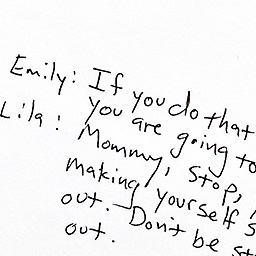 Emily: If you do that
you are going to
Lila: Mommy, stop,
making yourself
out. Don't be
out.